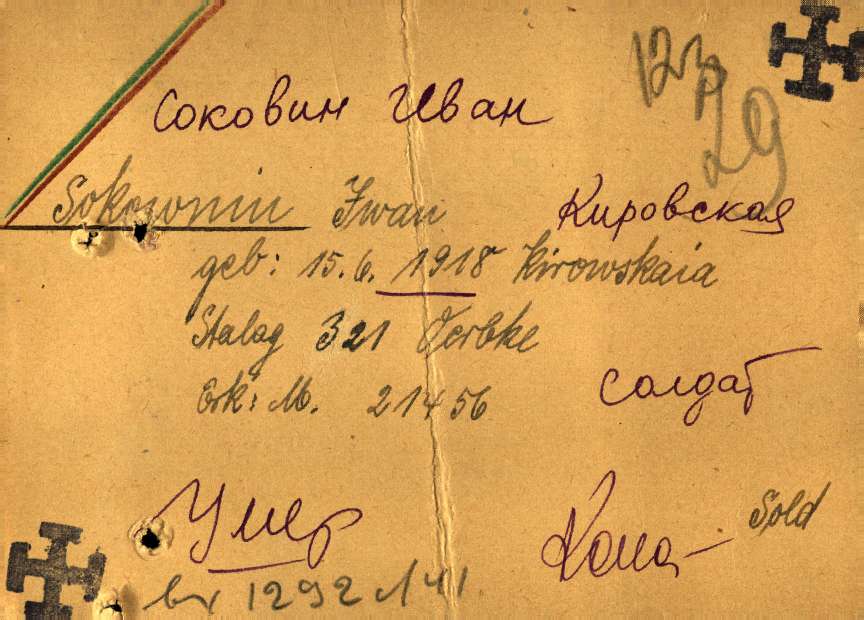 123
29
Соковин Иван
Sokownin Iwan
Кировская
geb: 15.6. 1918 Kirowskaia
Stalag 321 Oerbke
Erk: M. 21456
солдат
Умер
Sold
1292